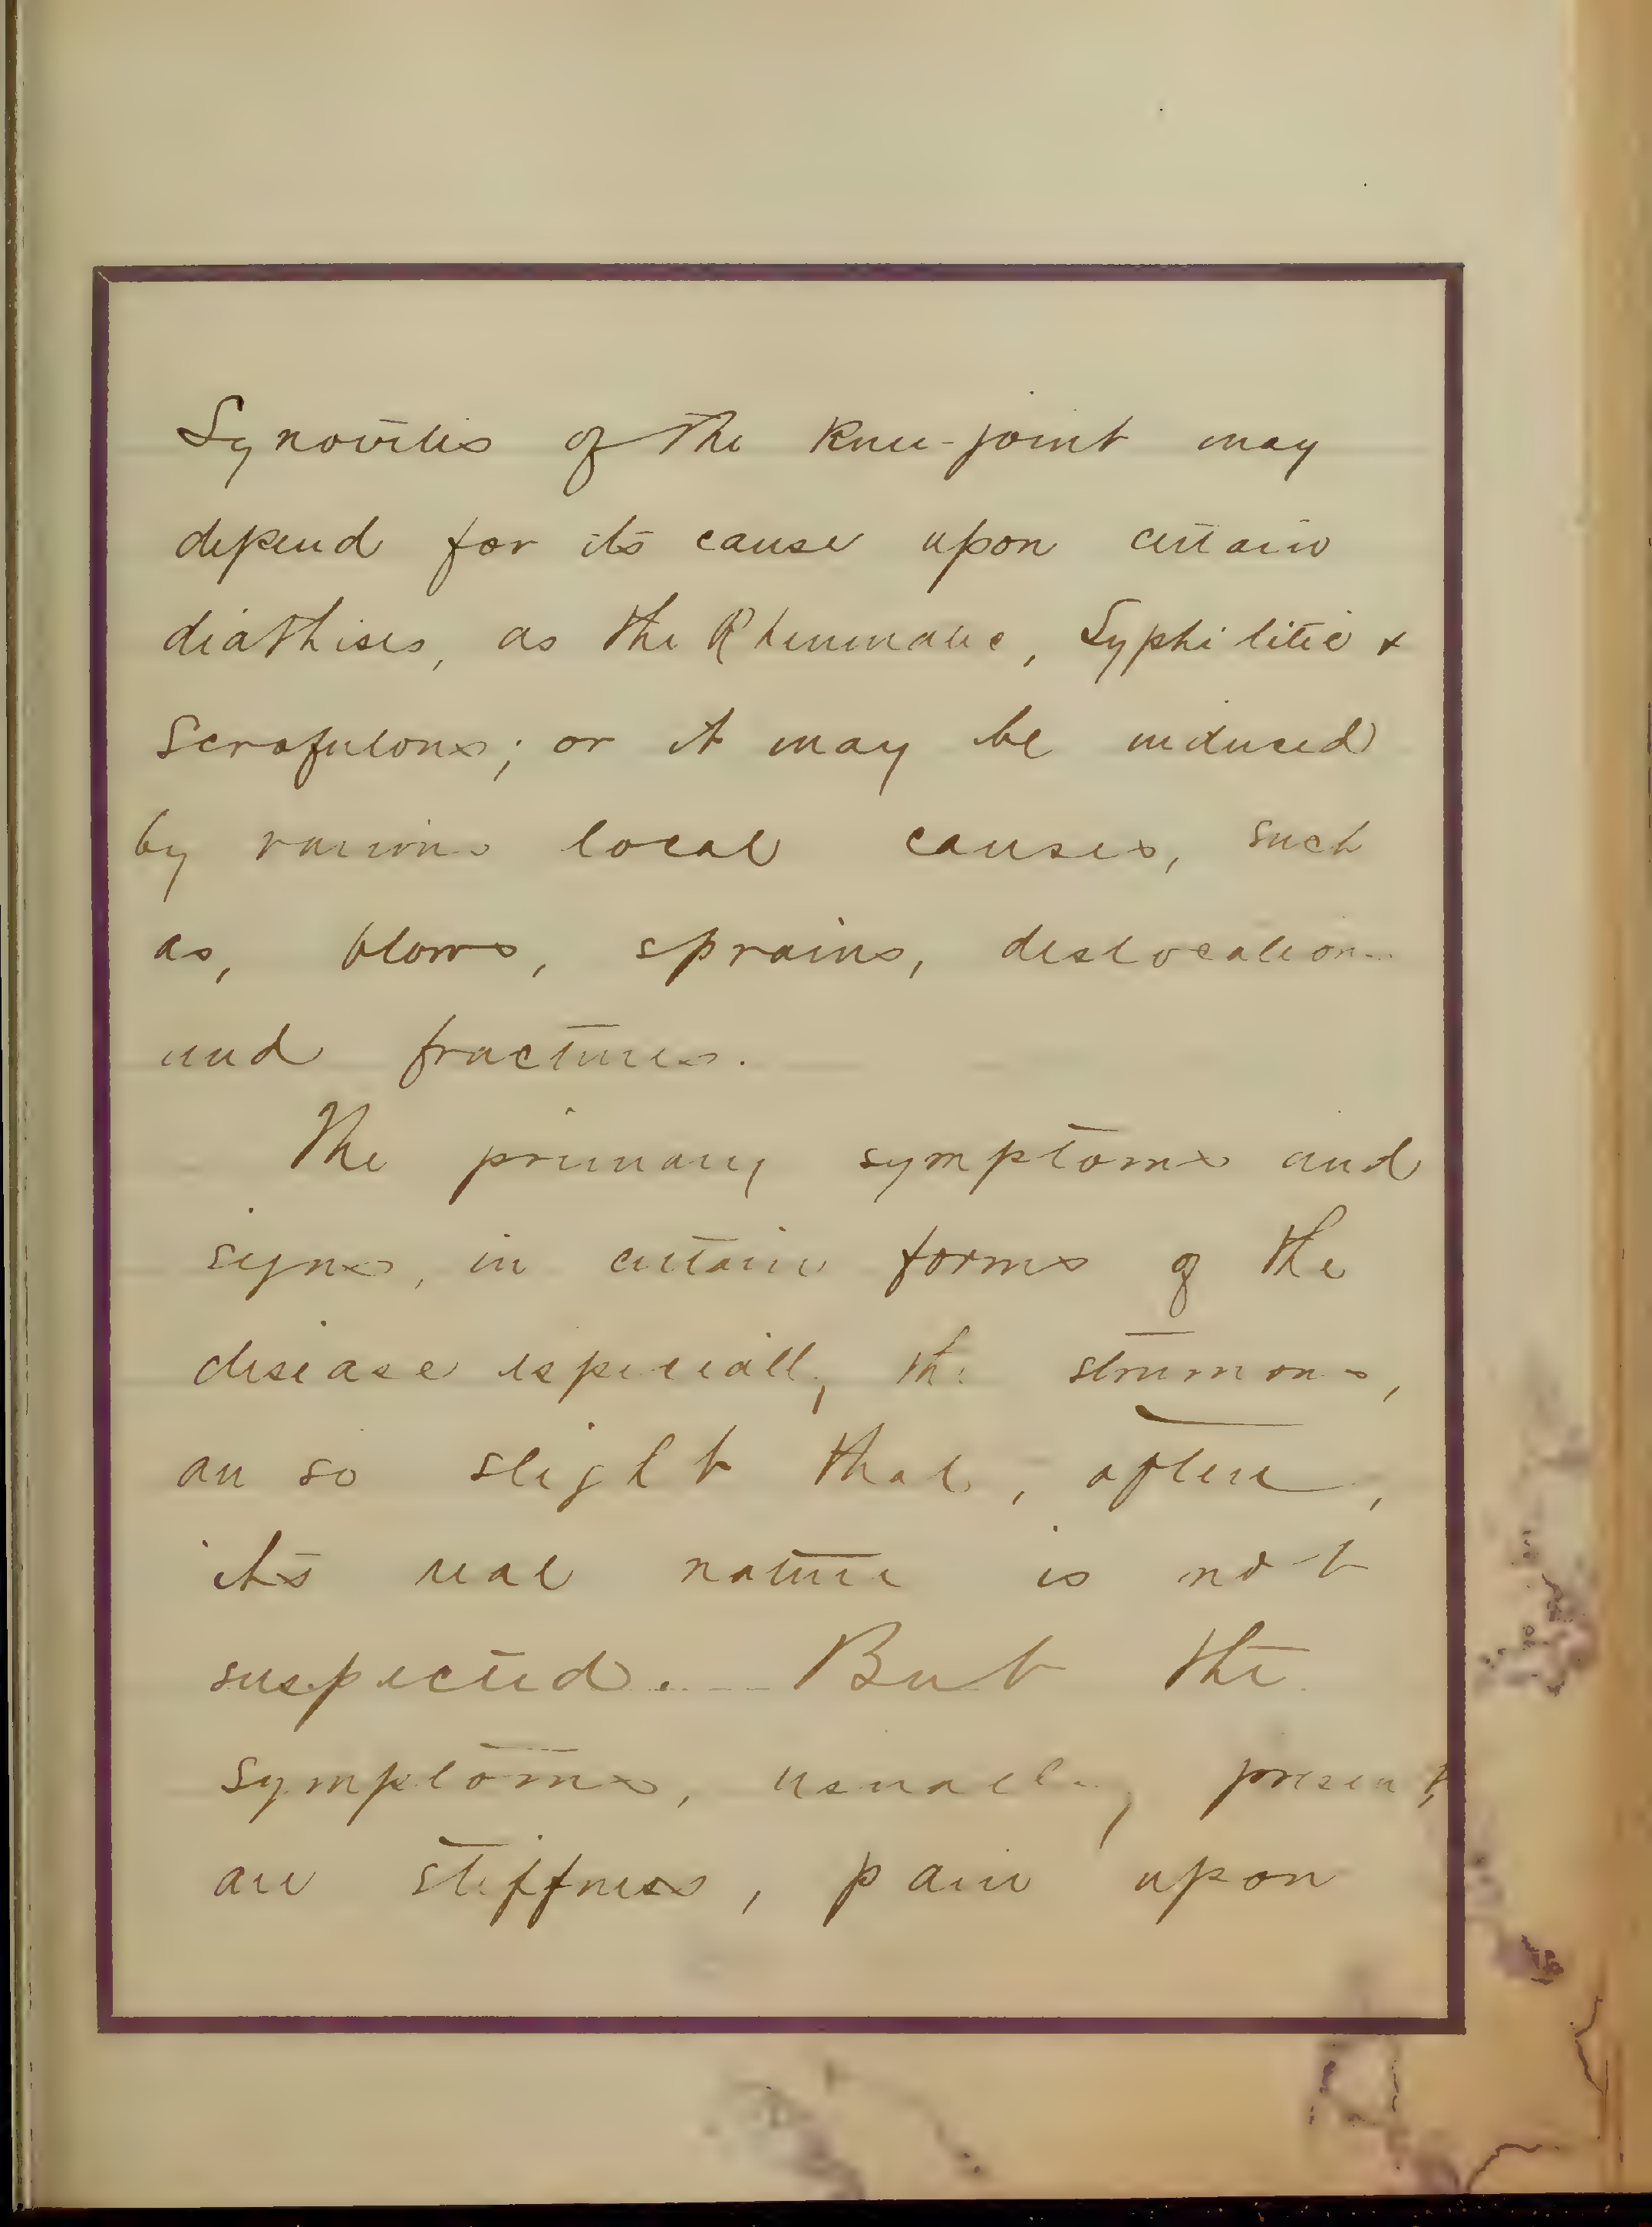 Synovitis of the knee-joint may
depend for its cause upon certain
diathises, as the Rheumatic, Syphilitic &
Scrofulous; or it may be induced
by various local causes, such
as, blows, sprains, dislocations
and fractures.
The primary symptoms and
signs, in certain forms of the
disease especially the strumous,
are so slight that, often,
its real nature is not
suspected. But the
symptoms, usually present,
are stiffness, pain upon